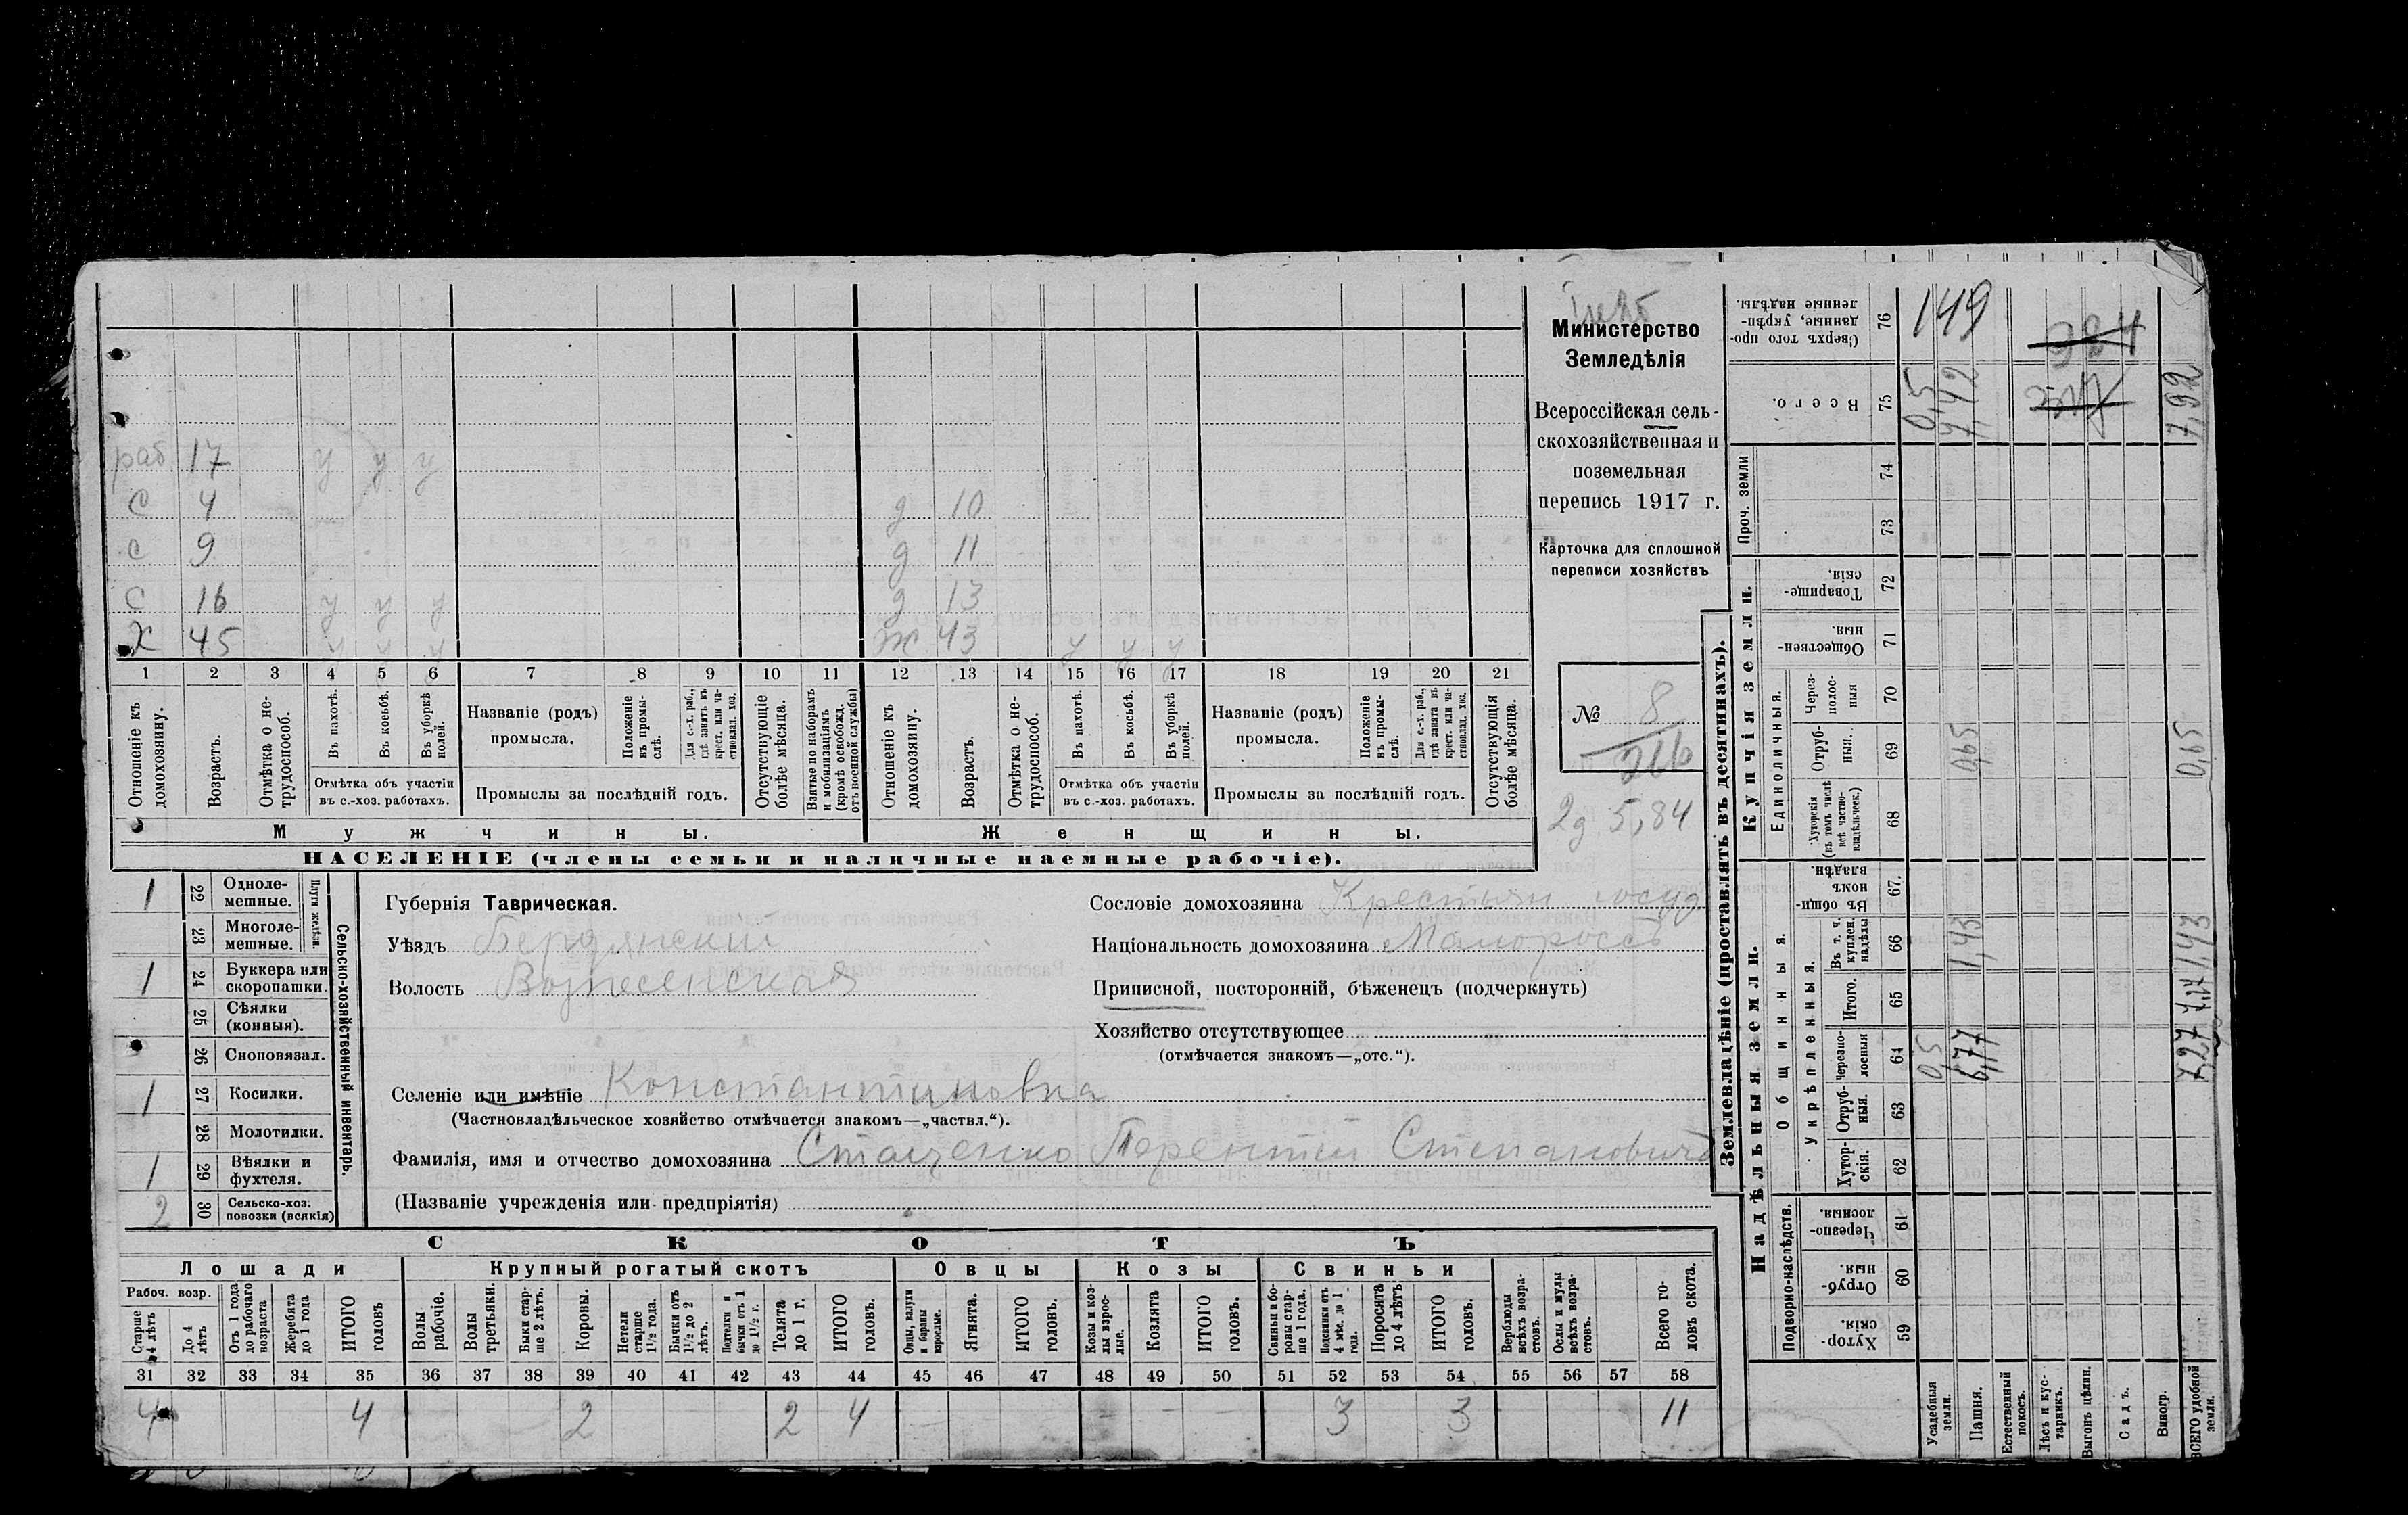 Министерство
Земледѣлія
Всероссійская сель-
скохозяйственная и
поземельная
перепись 1917 г.
Карточка для сплошной
переписи хозяйствъ
№ 8
266
2д. 5,84
раб 17 у у у
с 4 д 10
с 9 д 11
с 16 у у у д 13
Х 45 у у у ж 43 у у у
1 2 3 4 5 6 7 8 9 10 11 12 13 14 15 16 17 18 19 20 21
Отношеніе къ домохозяину.
Возрастъ.
Отмѣтка о не-трудоспособ.
Въ пахотѣ.
Въ косьбѣ.
Въ уборкѣ полей.
Отмѣтка объ участіи
въ с.-хоз. работахъ.
Названіе (родъ)
промысла.
Положеніе въ промы-слѣ.
Для с.-х. раб., гдѣ занятъ въ крест. или ча-ствовлад. хоз.
Промыслы за послѣдній годъ.
Отсутствующіе болѣе мѣсяца.
Взятые по наборамъ и мобилизаціямъ (кромѣ освобожд. отъ военной службы)
Отношеніе къ домохозяину.
Возрастъ.
Отмѣтка о не-трудоспособ.
Въ пахотѣ.
Въ косьбѣ.
Въ уборкѣ полей.
Отмѣтка объ участіи
въ с.-хоз. работахъ.
Названіе (родъ)
промысла.
Положеніе въ промы-слѣ.
Для с.-х. раб., гдѣ занята въ крест. или ча-ствовлад. хоз.
Промыслы за послѣдній годъ.
Отсутствующія болѣе мѣсяца.
Мужчины. Женщины.
НАСЕЛЕНІЕ (члены семьи и наличные наемные рабочіе).
Сельско-хозяйственный инвентарь.
Плуги желѣзн.
1 22 Одноле-мешные.
23 Многоле-мешные.
1 24 Буккера или скоропашки.
25 Сѣялки (конныя).
26 Сноповязал.
1 27 Косилки.
28 Молотилки.
1 29 Вѣялки и фухтеля.
2 30 Сельско-хоз. повозки (всякія)
Губернія Таврическая.
Уѣздъ Бердянский
Волость Вознесенская
Селеніе или имѣніе Константиновка
(Частновладѣльческое хозяйство отмѣчается знакомъ—„частвл.“).
Фамилія, имя и отчество домохозяина Стаценко Терентій Степановичъ
(Названіе учрежденія или предпріятія)
Сословіе домохозяина Крестьян госуд
Національность домохозяина Малороссъ
Приписной, посторонній, бѣженецъ (подчеркнуть)
Хозяйство отсутствующее
(отмѣчается знакомъ—„отс.“).
СКОТЪ
Лошади Крупный рогатый скотъ Овцы Козы Свиньи
Рабоч. возр.
Старше 4 лѣтъ
До 4 лѣтъ
Отъ 1 года до рабочаго возраста
Жеребята до 1 года
ИТОГО головъ
Волы рабочіе.
Волы третьяки.
Быки стар-ше 2 лѣтъ.
Коровы.
Нетели старше 1½ года.
Бычки отъ 1½ до 2 лѣтъ.
Подтелки и бычки отъ 1 до 1½ г.
Телята до 1 г.
ИТОГО головъ.
Овцы, валухи и бараны взрослые.
Ягнята.
ИТОГО головъ.
Козы и коз-лы взрос-лые.
Козлята
ИТОГО головъ.
Свиньи и бо-ровы стар-ше 1 года.
Подсвинки отъ 4 мѣс. до 1 года.
Поросята до 4 лѣтъ
ИТОГО головъ.
Верблюды всѣхъ возра-стовъ.
Ослы и мулы всѣхъ возра-стовъ.
Всего го-ловъ скота.
31 32 33 34 35 36 37 38 39 40 41 42 43 44 45 46 47 48 49 50 51 52 53 54 55 56 57 58
4 4 2 2 4 3 3 11
Землевладѣніе (проставлять въ десятинахъ).
Купчія земли.
Надѣльныя земли.
Сверхъ того про-данные, укрѣп-ленные надѣлы. 76 149
Всего. 75 0,5 7,42 7,92
Проч. земли 74 73
Товарище-скія. 72
Обществен-ныя. 71
Единоличныя.
Через-полос-ныя 70
Отруб-ныя. 69 0,65 0,65
Хуторскія (въ томъ числѣ всѣ частно-владѣльческ.) 68
Въ общи-номъ владѣн. 67.
Общинныя.
Укрѣпленныя.
Въ т. ч. куплен. надѣлы 66 1,43 1,43
Итого. 65
Черезпо-лосныя 64 0,5 6,77 7,27
Отруб-ныя. 63
Хутор-скія. 62
Подворно-наслѣдств.
Черезпо-лосныя. 61
Отруб-ныя. 60
Хутор-скія. 59
Усадебныя земли.
Пашня.
Естественный покосъ.
Лѣсъ и кус-тарникъ.
Выгонъ цѣлин.
Садъ.
Виногр.
ВСЕГО удобной земли.